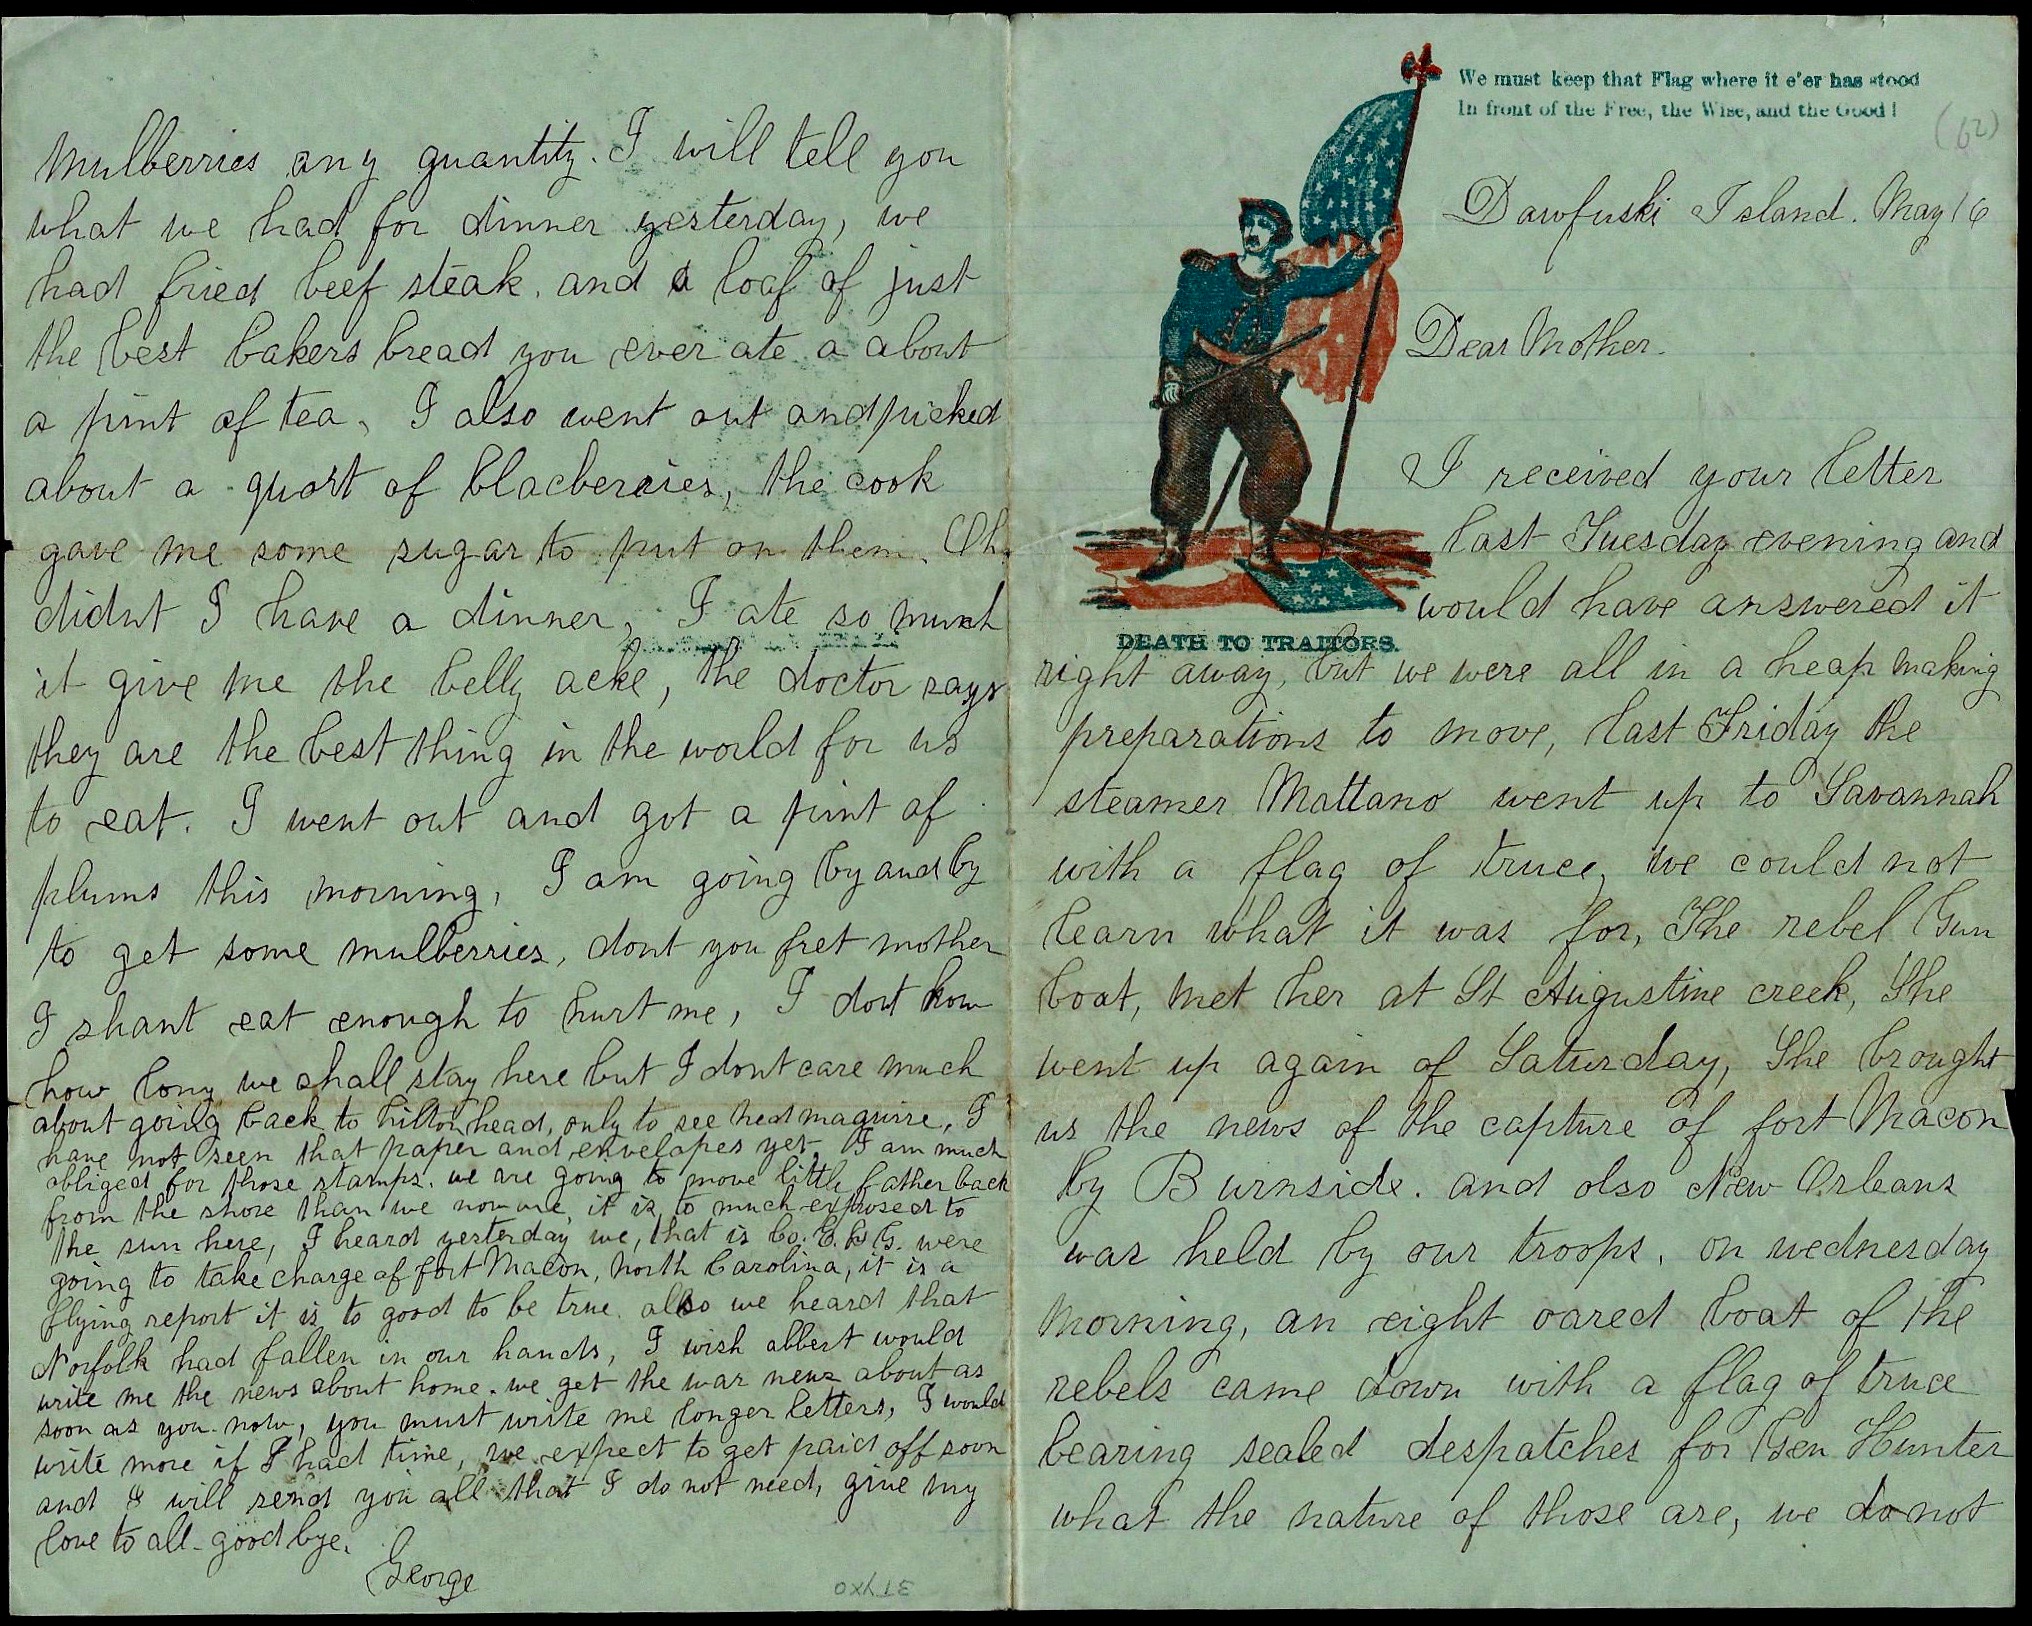 We must keep that Flag where it e'er has stood
In front of the Free, the Wise, and the Good!
(62)
Dawfuski Island. May 16
Dear Mother.
I received your letter
last Tuesday evening and
would have answered it
DEATH TO TRAITORS.
right away, but we were all in a heap making
preparations to move, last Friday the
steamer Mattano went up to Savannah
with a flag of truce, we could not
learn what it was for, The rebel Gun
boat, met her at St Augustine creek, She
went up again of Saturday, She brought
us the news of the capture of fort Macon
by Burnside. and also New Orleans
was held by our troops, on wednesday
morning, an eight oared boat of the
rebels came down with a flag of truce
bearing sealed despatches for Gen Hunter
what the nature of those are, we do not
Mulberries any quantity. I will tell you
what we had for dinner yesterday, we
had fried beef steak, and a loaf of just
the best bakers bread you ever ate a about
a pint of tea, I also went out and picked
about a quart of blacberries, the cook
gave me some sugar to put on them. Oh.
didnt I have a dinner, I ate so much
it give me the belly acke, the doctor says
they are the best thing in the world for us
to eat. I went out and got a pint of
plums this morning, I am going by and by
to get some mulberries, dont you fret mother
I shant eat enough to hurt me, I dont know
how long we shall stay here but I dont care much
about going back to hilton head, only to see ned maguire, I
have not seen that paper and envelopes yet. I am much
obliged for those stamps. we are going to move little father back
from the shore than we now are, it is to much exposed to
the sun here, I heard yesterday we, that is Co. E. & G. were
going to take charge of fort Macon, North Carolina, it is a
flying report it is to good to be true. also we heard that
Norfolk had fallen in our hands, I wish albert would
write me the news about home. we get the war news about as
soon as you now, you must write me longer letters, I would
write more if I had time, we expect to get paid off soon
and I will send you all that I do not need, give my
love to all. good bye.
George